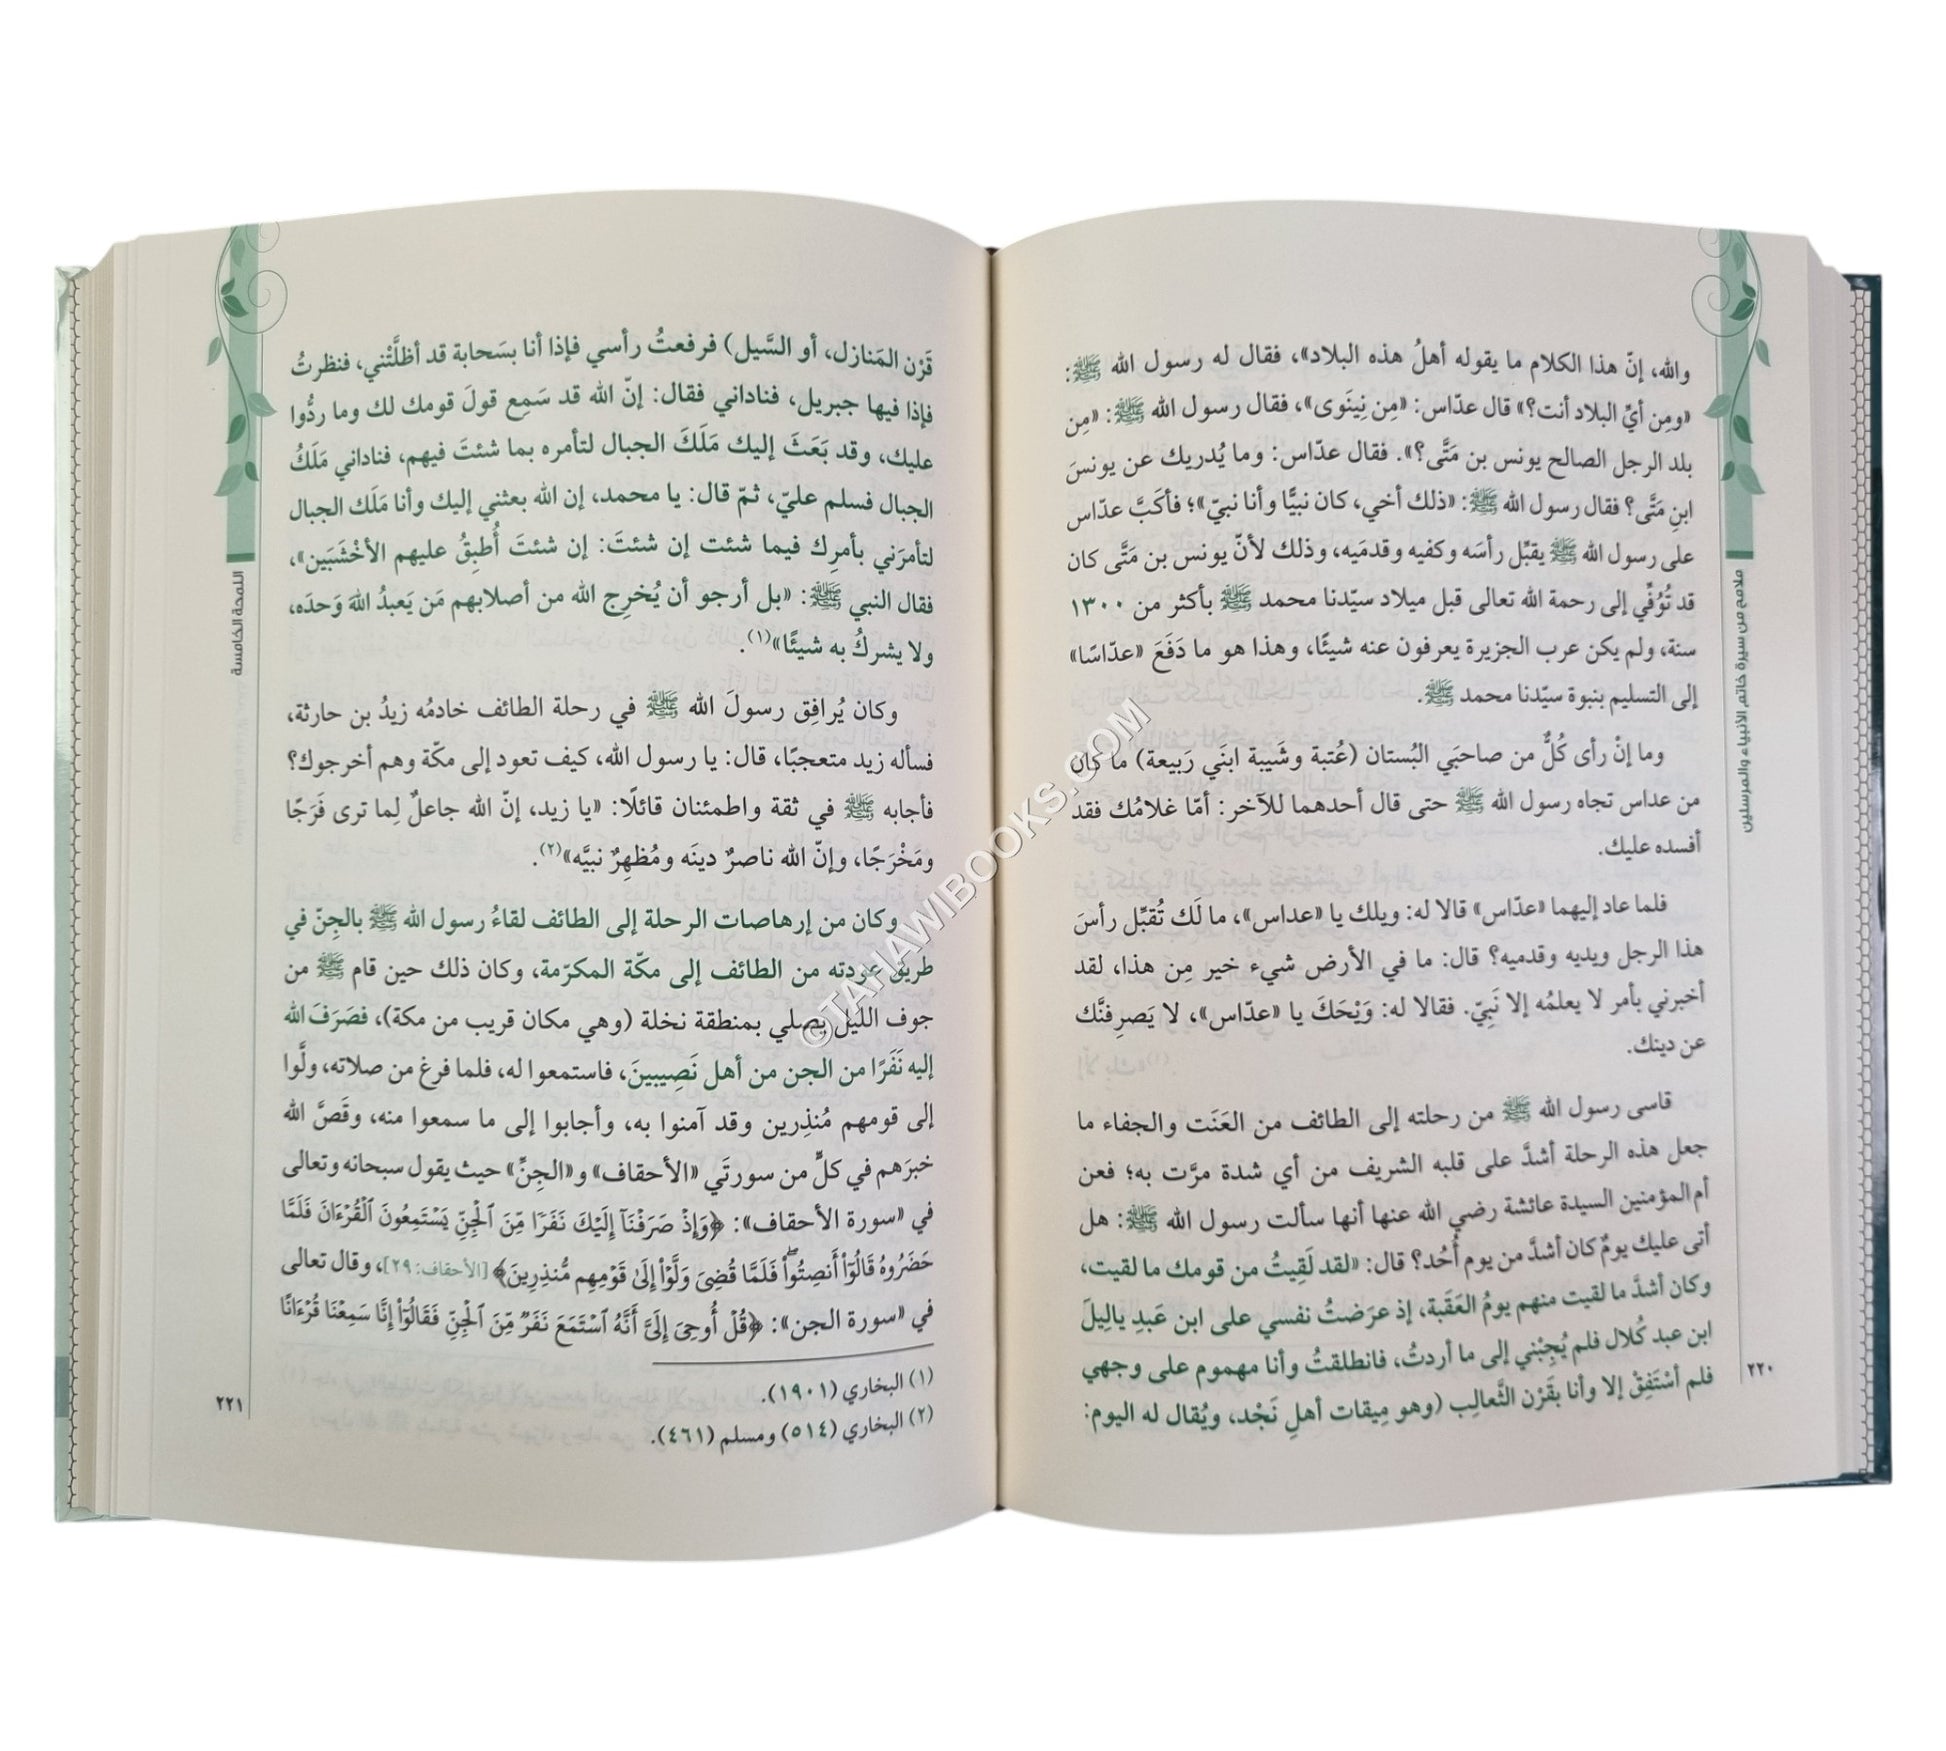 ملامح من سيرة خاتم الأنبياء والمرسلين
والله، إنّ هذا الكلام ما يقوله أهلُ هذه البلاد»، فقال له رسول الله ﷺ:
«ومِن أيِّ البلاد أنت؟» قال عدّاس: «مِن نِينَوى»، فقال رسول الله ﷺ: «مِن
بلد الرجل الصالح يونس بن مَتَّى؟». فقال عدّاس: وما يُدريك عن يونسَ
ابنِ مَتَّى؟ فقال رسول الله ﷺ: «ذلك أخي، كان نبيًّا وأنا نبيّ»؛ فأكَبَّ عدّاس
على رسول الله ﷺ يقبِّل رأسَه وكفيه وقدمَيه، وذلك لأنّ يونس بن مَتَّى كان
قد تُوُفِّي إلى رحمة الله تعالى قبل ميلاد سيّدنا محمد ﷺ بأكثر من ١٣٠٠
سنة، ولم يكن عرب الجزيرة يعرفون عنه شيئًا، وهذا هو ما دَفَعَ «عدّاسًا»
إلى التسليم بنبوة سيّدنا محمد ﷺ.
وما إنْ رأى كُلٌّ من صاحبَي البُستان (عُتبة وشَيبة ابنَي رَبيعة) ما كان
من عداس تجاه رسول الله ﷺ حتى قال أحدهما للآخر: أمّا غلامُك فقد
أفسده عليك.
فلما عاد إليهما «عدّاس» قالا له: ويلك يا «عداس»، ما لَك تُقبِّل رأسَ
هذا الرجل ويديه وقدميه؟ قال: ما في الأرض شيء خير مِن هذا، لقد
أخبرني بأمر لا يعلمُه إلا نَبِيّ. فقالا له: وَيْحَكَ يا «عدّاس»، لا يَصرِفنَّك
عن دينك.
قاسى رسول الله ﷺ من رحلته إلى الطائف من العَنَت والجفاء ما
جعل هذه الرحلة أشدَّ على قلبه الشريف من أي شدة مرَّت به؛ فعن
أم المؤمنين السيدة عائشة رضي الله عنها أنها سألت رسول الله ﷺ: هل
أتى عليك يومٌ كان أشدَّ من يوم أُحُد؟ قال: «لقد لَقِيتُ من قومك ما لقيت،
وكان أشدَّ ما لقيت منهم يومُ العَقَبة، إذ عرَضتُ نفسي على ابن عَبدِ يالِيلَ
ابن عبد كُلال فلم يُجِبْني إلى ما أردتُ، فانطلقتُ وأنا مهموم على وجهي
فلم أسْتَفِقْ إلا وأنا بقَرْن الثَّعالِب (وهو مِيقات أهلِ نَجْد، ويُقال له اليوم:
٢٢٠
اللمحة الخامسة
قَرْن المَنازل، أو السَّيل) فرفعتُ رأسي فإذا أنا بسَحابة قد أظلَّتْني، فنظرتُ
فإذا فيها جبريل، فناداني فقال: إنّ الله قد سَمِع قولَ قومك لك وما ردُّوا
عليك، وقد بَعَثَ إليك مَلَكَ الجبال لتأمره بما شئتَ فيهم، فناداني مَلَكُ
الجبال فسلم عليّ، ثمّ قال: يا محمد، إن الله بعثني إليك وأنا مَلَك الجبال
لتأمرَني بأمرِك فيما شئت إن شئتَ: إن شئتَ أُطبِقُ عليهم الأخْشَبَين»،
فقال النبي ﷺ: «بل أرجو أن يُخرِج الله من أصلابهم مَن يَعبدُ اللهَ وَحدَه،
ولا يشركُ به شيئًا»(١).
وكان يُرافِق رسولَ الله ﷺ في رحلة الطائف خادمُه زيدُ بن حارثة،
فسأله زيد متعجبًا، قال: يا رسول الله، كيف تعود إلى مكّة وهم أخرجوك؟
فأجابه ﷺ في ثقة واطمئنان قائلًا: «يا زيد، إنّ الله جاعلٌ لِما ترى فَرَجًا
ومَخْرَجًا، وإنّ الله ناصرٌ دينَه ومُظهِرٌ نبيَّه»(٢).
وكان من إرهاصات الرحلة إلى الطائف لقاءُ رسول الله ﷺ بالجِنّ في
طريق عودته من الطائف إلى مكّة المكرّمة، وكان ذلك حين قام ﷺ من
جوف الليل يصلي بمنطقة نخلة (وهي مكان قريب من مكة)، فصَرَفَ الله
إليه نَفَرًا من الجن من أهل نَصِيبينَ، فاستمعوا له، فلما فرغ من صلاته، ولَّوا
إلى قومهم مُنذِرين وقد آمنوا به، وأجابوا إلى ما سمعوا منه، وقَصَّ الله
خبرَهم في كلٍّ من سورتَي «الأحقاف» و«الجِنِّ» حيث يقول سبحانه وتعالى
في «سورة الأحقاف»: ﴿وَإِذْ صَرَفْنَآ إِلَيْكَ نَفَرًا مِّنَ ٱلْجِنِّ يَسْتَمِعُونَ ٱلْقُرْءَانَ فَلَمَّا
حَضَرُوهُ قَالُوٓا۟ أَنصِتُوا۟ ۖ فَلَمَّا قُضِىَ وَلَّوْا۟ إِلَىٰ قَوْمِهِم مُّنذِرِينَ﴾ [الأحقاف: ٢٩]، وقال تعالى
في «سورة الجن»: ﴿قُلْ أُوحِىَ إِلَىَّ أَنَّهُ ٱسْتَمَعَ نَفَرٌ مِّنَ ٱلْجِنِّ فَقَالُوٓا۟ إِنَّا سَمِعْنَا قُرْءَانًا
(١) البخاري (١٩٠١).
(٢) البخاري (٥١٤) ومسلم (٤٦١).
٢٢١
©TAHAWIBOOKS.COM